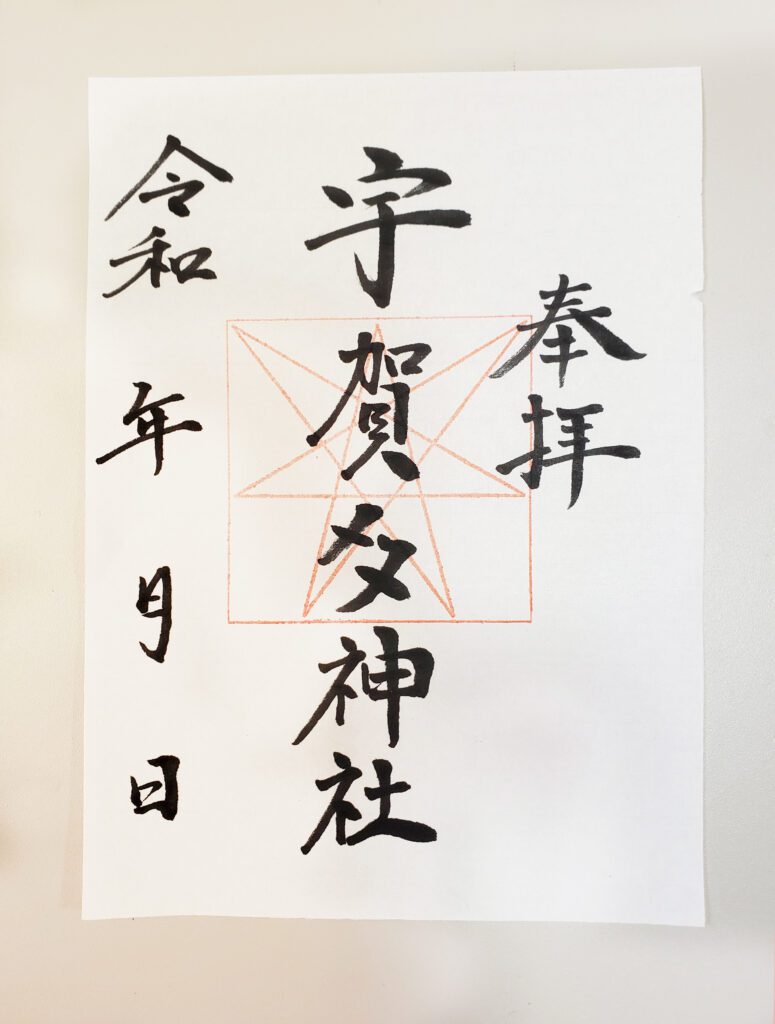 奉拝
宇賀多神社
令和 年 月 日